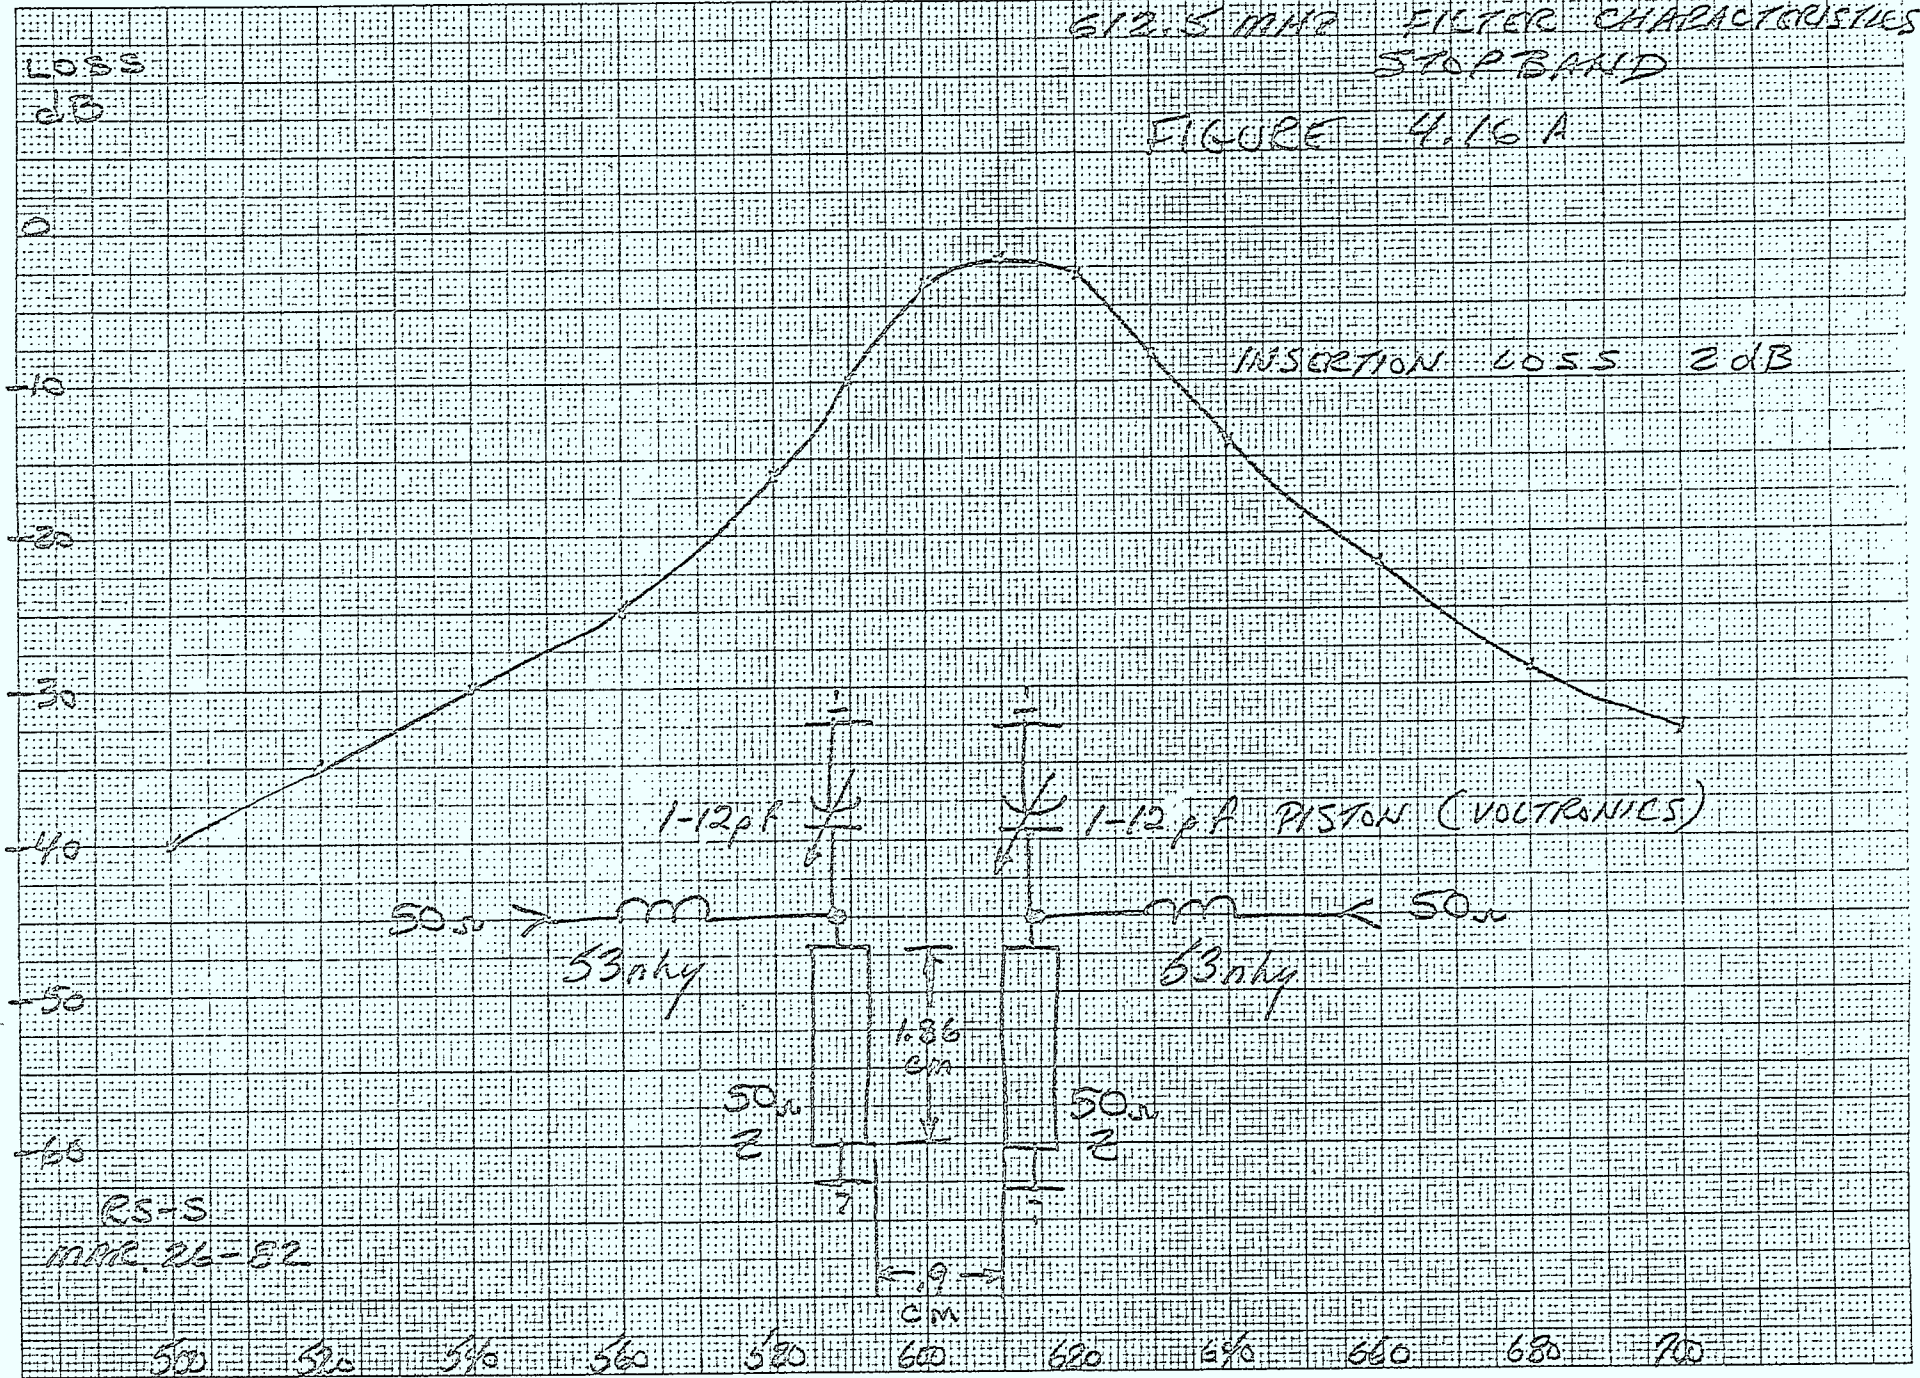 612.5 MHz FILTER CHARACTERISTICS
STOPBAND
FIGURE 4.16 A
LOSS
dB
0
-10
INSERTION LOSS 2 dB
-20
-30
1-12pf
1-12pf PISTON (VOLTRONICS)
-40
50Ω
50Ω
53nhy
53nhy
-50
1.86
cm
50Ω
Z
50Ω
Z
-60
RS-S
MAR. 26-82
.9
cm
500 520 540 560 580 600 620 640 660 680 700